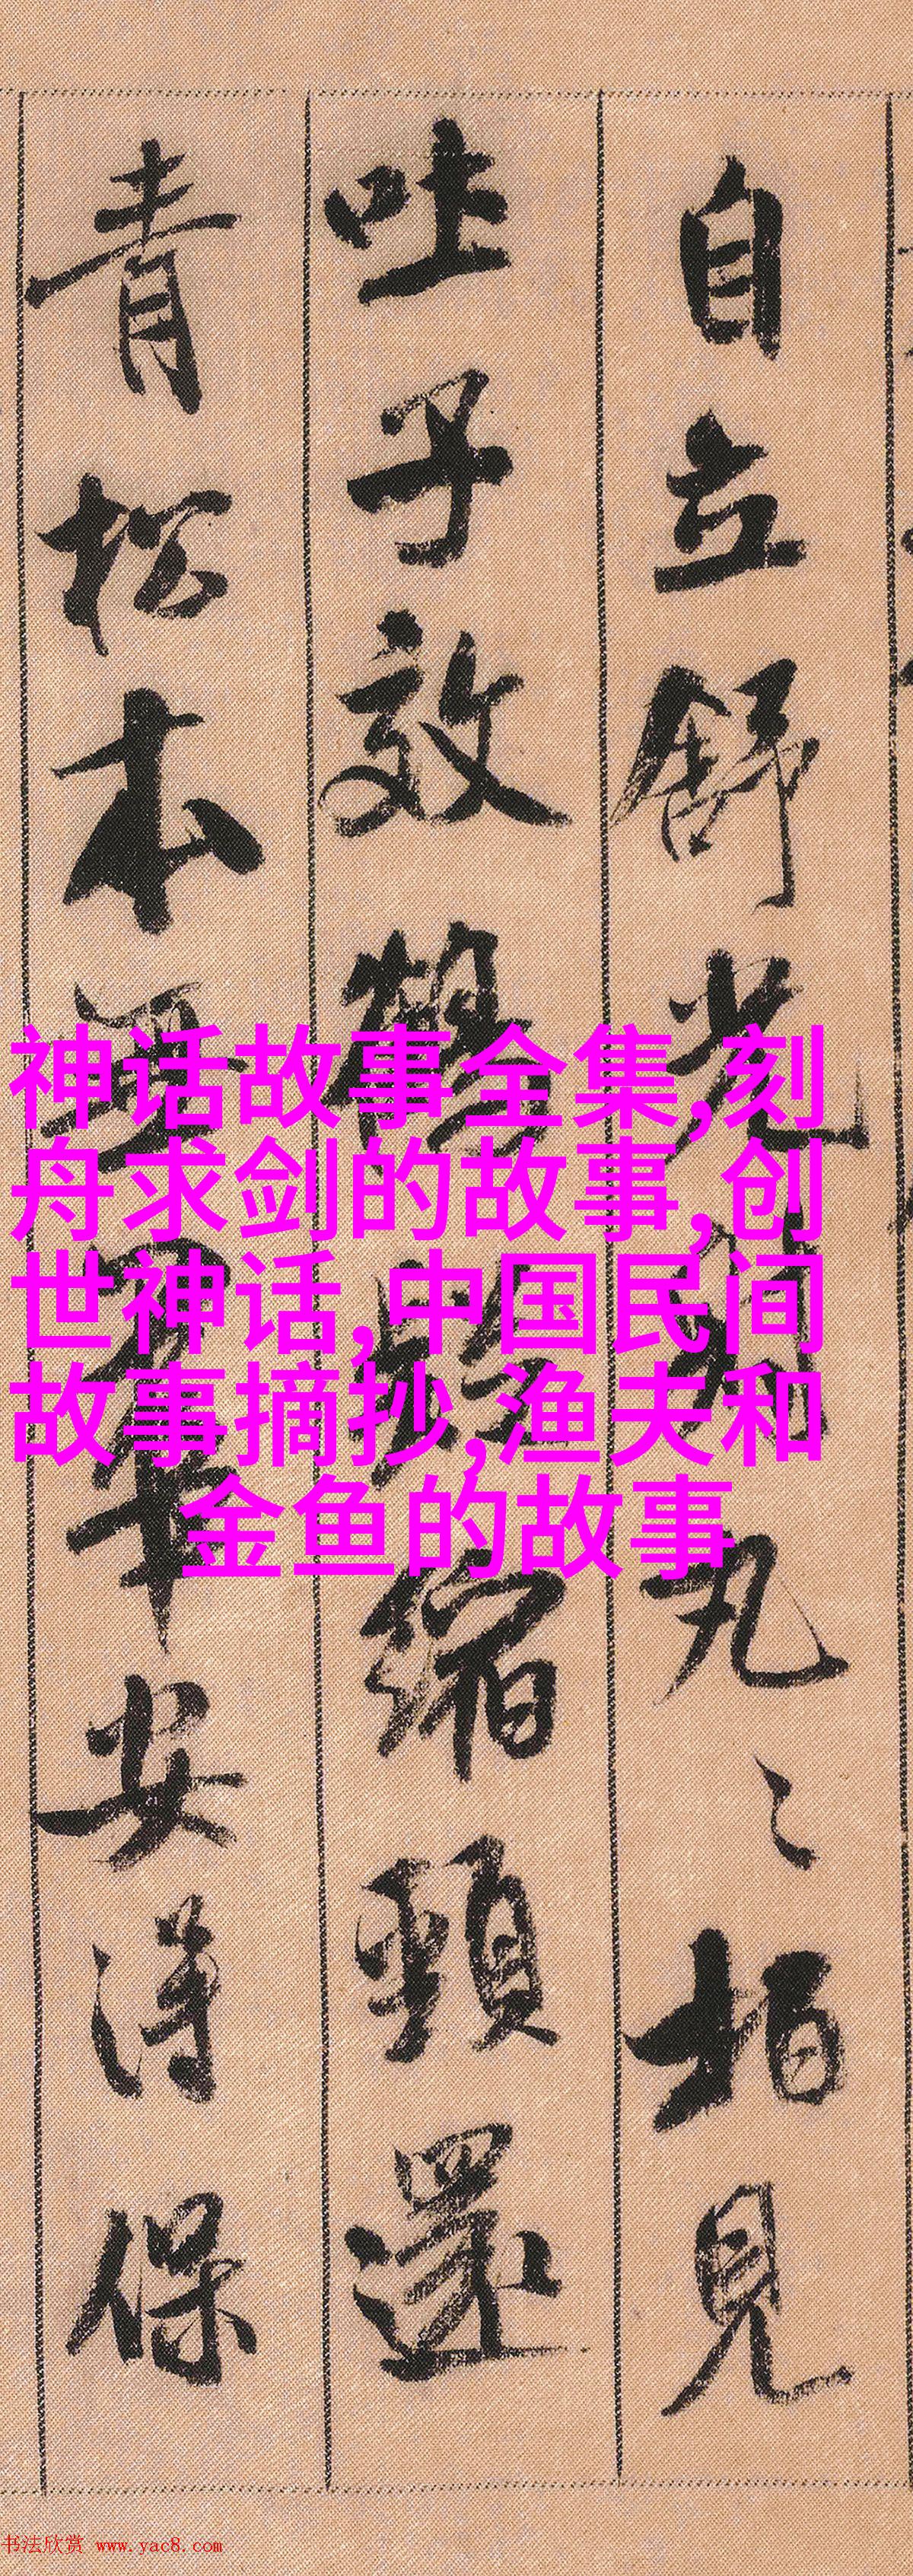 自立舒光射丸〻柏見
吐子效鶴疑縮頸還
青松本無華安得保
神话故事全集,刻
舟求剑的故事,创
世神话,中国民间
故事摘抄,渔夫和
金鱼的故事
书法欣赏 www.yac8.com